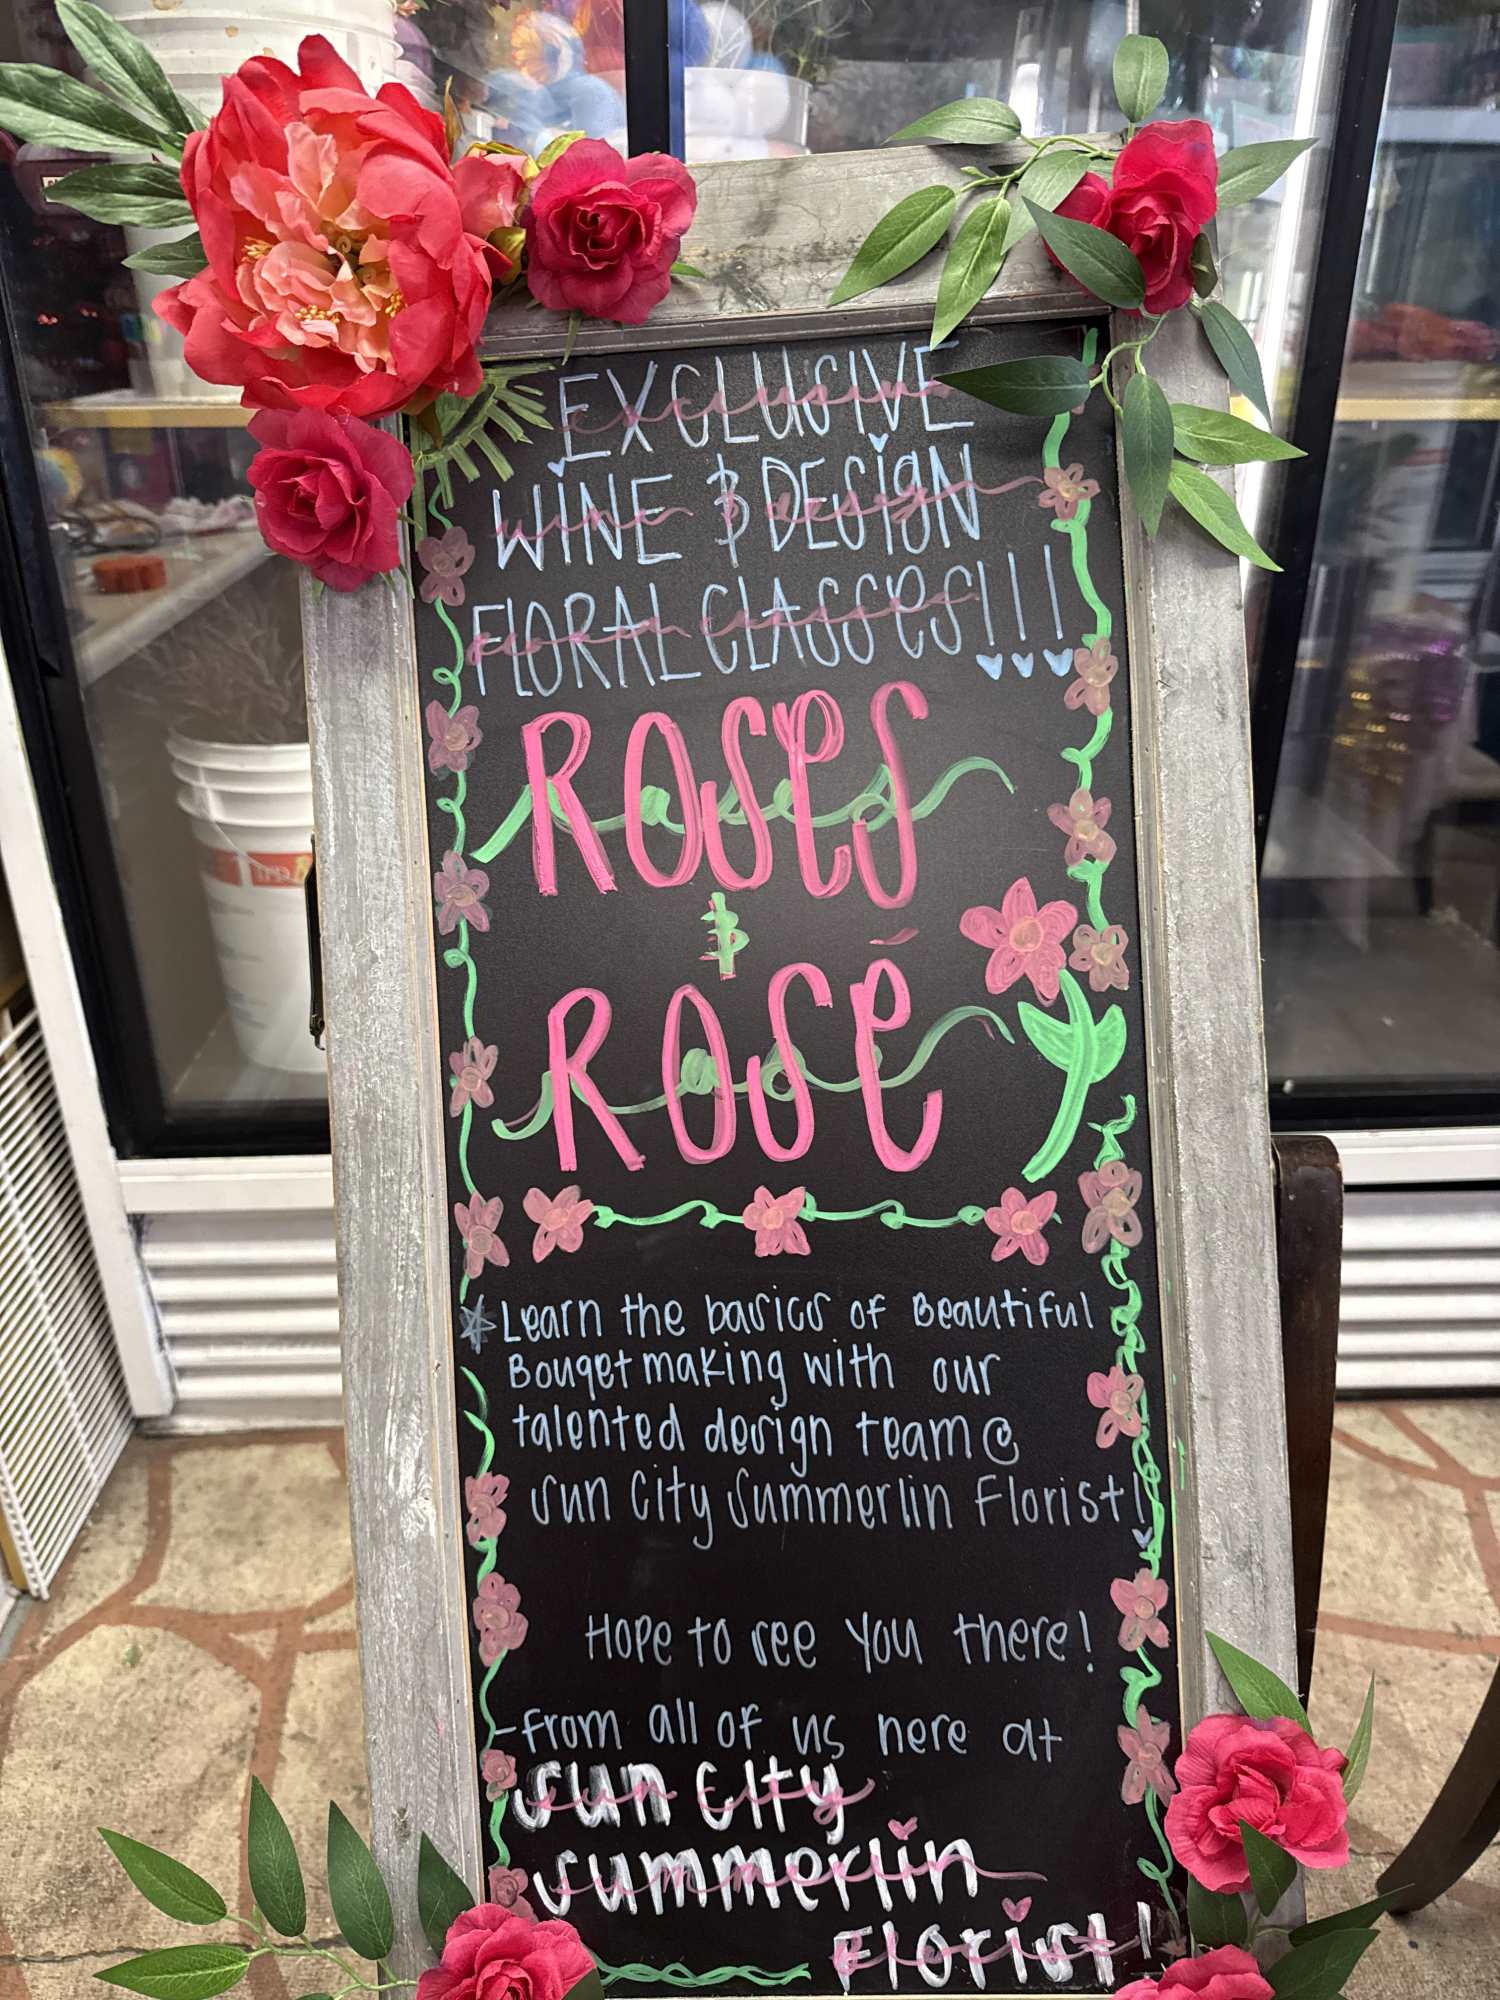 EXCLUSIVE
WINE & DESIGN
FLORAL CLASSES!!!
ROSES
&
ROSÉ
*Learn the basics of Beautiful
Bouqet making with our
talented design team@
Sun City Summerlin Florist!
Hope to see you there!
-From all of us here at
Sun City
Summerlin
Florist!